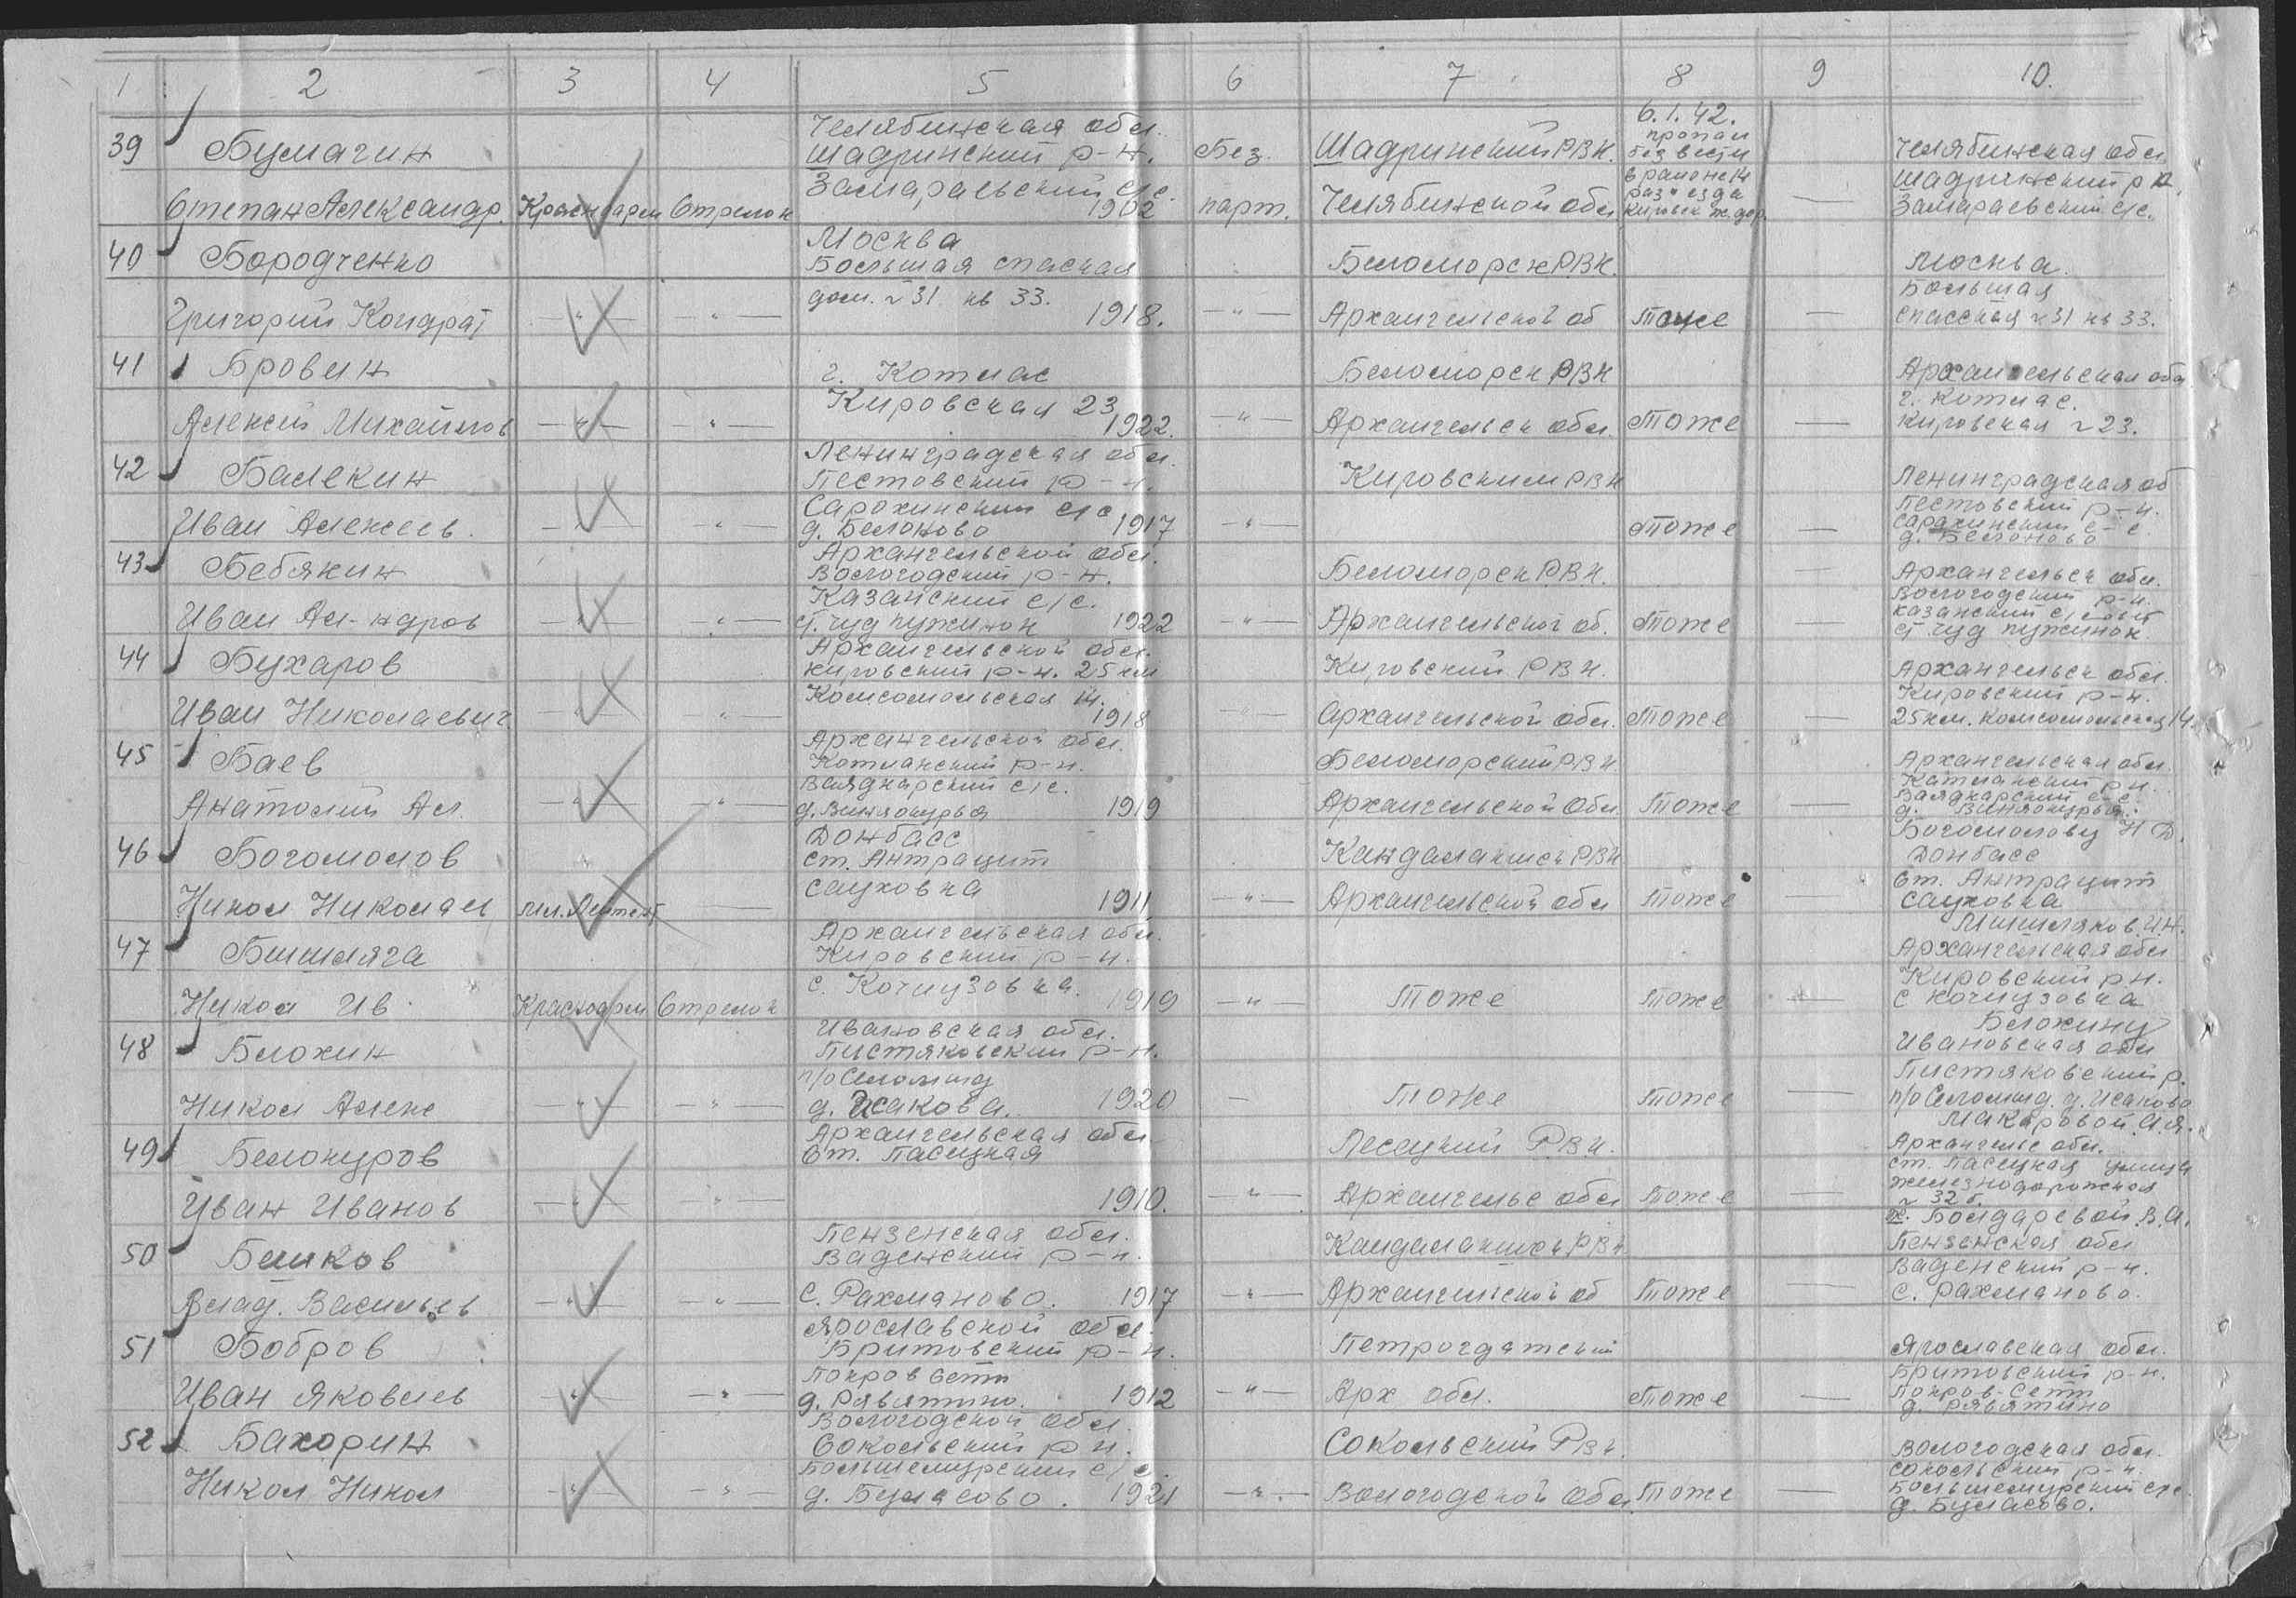 1 2 3 4 5 6 7 8 9 10.
39 Бумагин
Степан Александр. Красноарм Стрелок
Челябинская обл.
Шадринский р-н.
Замараевский с/с.
1902
Без.
парт.
Шадринский РВК.
Челябинской обл
6.1.42.
пропал
без вести
в районе
раз'езда
Кировск ж. дор.
—
Челябинская обл
Шадринский р-н,
Замараевский с/с.
40 Бородченко
Григорий Кондрат
— " — — " —
Москва
Большая спаская
дом. №31 кв 33.
1918.
— " —
Беломорск РВК.
Архангельской об
Тоже
—
Москва.
Большая
спасская №31 кв 33.
41 Бровин
Алексей Михайлов
— " — — " —
г. Котлас
Кировская 23
1922.
— " —
Беломорск РВК
Архангельск обл.
Тоже
—
Архангельская обл
г. Котлас.
Кировская №23.
42 Балекин
Иван Алексеев.
— " — — " —
Ленинградская обл.
Пестовский р-н.
Сарохинский с/с
д. Белоново 1917
— " —
Кировским РВК
Тоже
—
Ленинградская об
Пестовский р-н.
Сарахинский с-с.
д. Белоново
43 Бебякин
Иван Ал-ндров
— " — — " —
Архангельской обл.
Вологодский р-н.
Казанский с/с.
1922
— " —
Беломорск РВК.
Архангельской об.
Тоже
—
Архангельск обл.
Вологодский р-н.
Казанский
44 Бухаров
Иван Николаевич
— " — — " —
Архангельской обл.
Кировский р-н. 25 км
Комсомольская 14.
1918
— " —
Кировский РВК.
Архангельской обл.
Тоже
—
Архангельск обл.
Кировский р-н.
25 км. Комсомольская 14.
45 Баев
Анатолий Ал.
— " — — " —
Архангельской обл.
Котласский р-н.
с/с.
1919
Беломорский РВК
Архангельской Обл
Тоже
—
Архангельская обл
Катласский р-н.
46 Богомолов
Никол Николаев
мл. Лейтент —
Донбасс
ст. Антрацит
Сауховка
1911
— " —
Кандалакшск РВК
Архангельской обл
Тоже
—
Богомолову Н Д.
Донбасс
Ст. Антрацит
Сауховка
47 Бишляга
Никол Ив.
Красноарм Стрелок
Архангельская обл.
Кировский р-н.
с. Кочиузовка.
1919
— " —
Тоже
Тоже
—
Мишляков. И.Н.
Архангельская обл
Кировский р-н.
с Кочиузовка
48 Блохин
Никол Алекс
— " — — " —
Ивановская обл.
Пистяковский р-н.
п/о
д. Исакова.
1920
—
Тоже
Тоже
—
Блохину
Ивановская обл
Пистяковский р.
п/о д. Исаково
49 Белокуров
Иван Иванов
— " — — " —
Архангельская обл
Ст. Пасецкая
1910.
— " —
Песецкий РВК.
Архангельс обл
Тоже
—
Макаровой А.Я.
Архангельс обл.
ст. Пасецкая улица
железнодорожная
№ 32 б.
50 Бешков
Влад. Васильев
— " — — " —
Пензенская обл.
Ваденский р-н.
С. Рахманово. 1917
— " —
Кандалакшск РВК
Архангельской об
Тоже
—
Болдаревой В.А.
Пензенская обл
Ваденский р-н.
с. Рахманово.
51 Бобров
Иван Яковлев
— " — — " —
Ярославской обл.
Бритовский р-н.
Покров Сетт
д. Рявятино. 1912
— " —
Арх обл.
Тоже
—
Ярославская обл.
Бритовский р-н.
Покров-Сетт
д. Рявятино
52 Бахорин
Никол Никол
— " — — " —
Вологодской обл.
Сокольский р-н.
с/с.
д. Буласово. 1921
— " —
Сокольский РВК.
Вологодской обл.
Тоже
—
Вологодская обл.
Сокольский р-н.
д. Буласово.